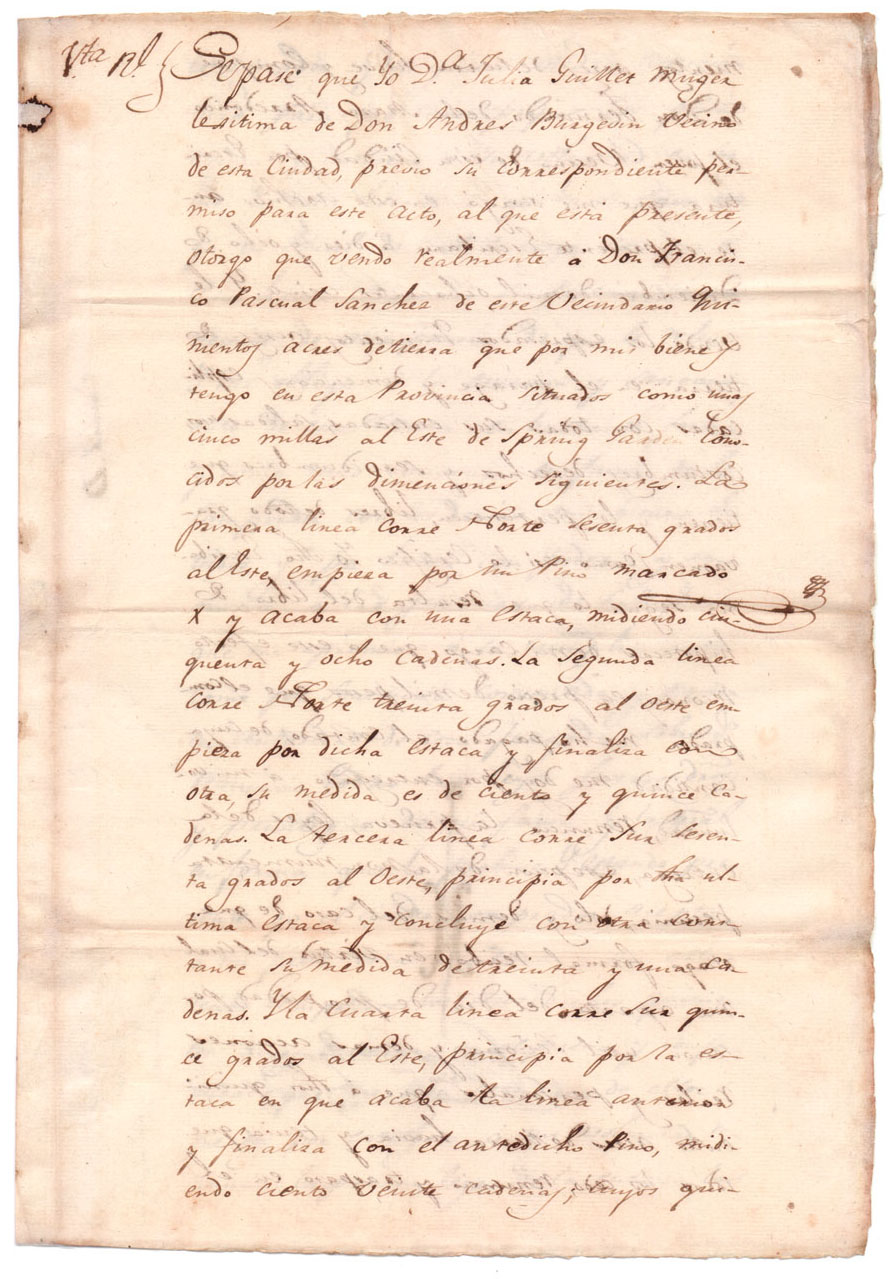 Vta Rl
Sepase que Yo D.a Julia Guillet muger
lexitima de Don Andres Burgevin Vecino
de esta Ciudad, previo su correspondiente per-
miso para este acto, al que está presente,
otorgo que vendo realmente á Don Francis-
co Pascual Sanchez de este Vecindario Qui-
nientos acres de tierra que por mis bienes
tengo en esta Provincia situados como unas
cinco millas al Este de Spring Garden cono-
cidos por las dimenciones siguientes. La
primera linea corre Norte sesenta grados
al Este, empieza por un Pino marcado
X y acaba con una estaca, midiendo cin-
quenta y ocho cadenas. La segunda linea
corre Norte treinta grados al oeste em-
pieza por dicha estaca y finaliza con
otra, su medida es de ciento y quince ca-
denas. La tercera linea corre Sur sesen-
ta grados al Oeste, principia por dha ul-
tima estaca y concluye con otra cons-
tante su medida de treinta y una ca-
denas. Y la cuarta linea corre Sur quin-
ce grados al Este, principia por la es-
taca en que acaba la linea anterior
y finaliza con el antedicho Pino, midi-
endo ciento veinte cadenas; cuyos qui-